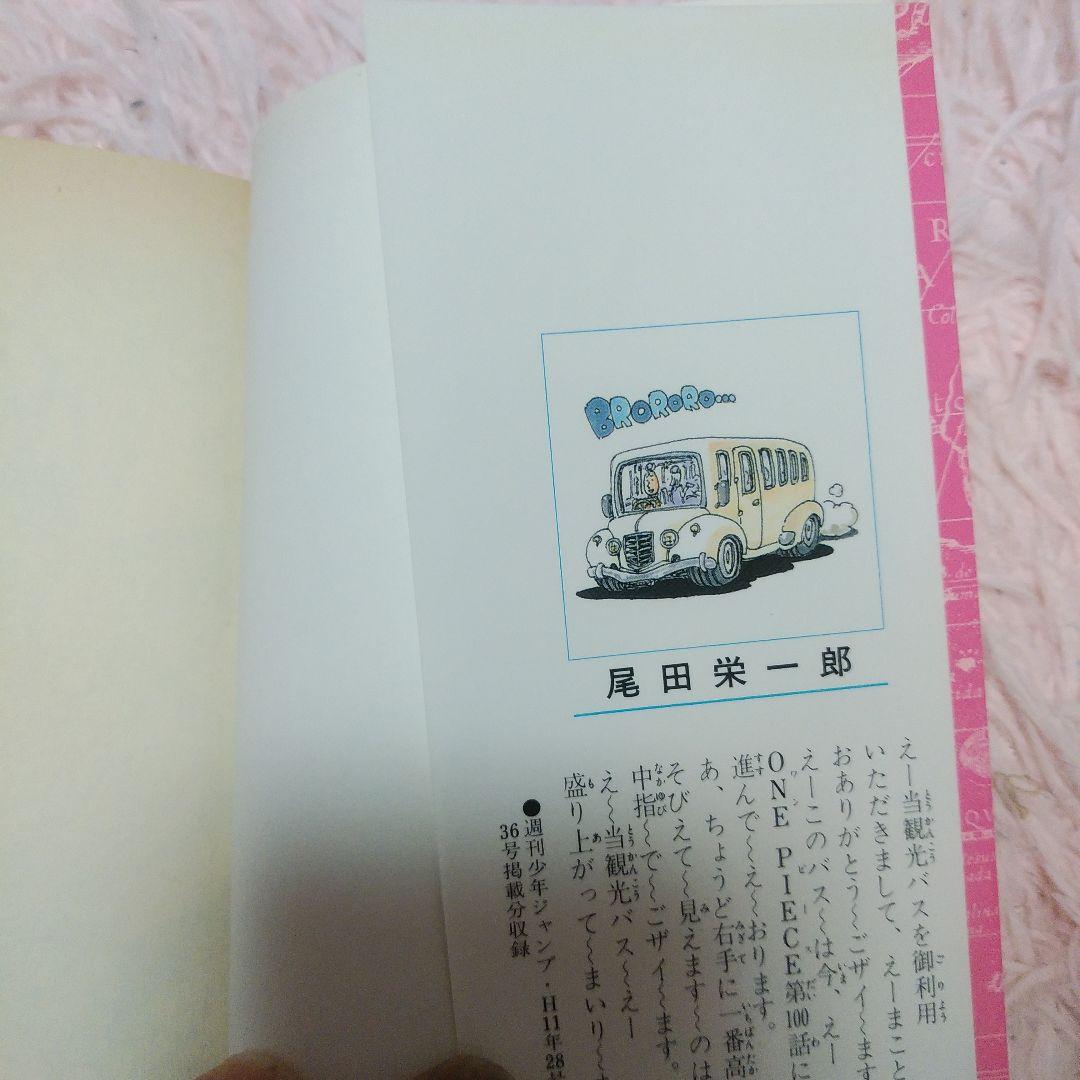 BRORORO...
尾田栄一郎
えー当観光バスを御利用
いただきまして、えーまこと
おありがとう〜ございます
えーこのバス〜は今、えー
ONE PIECE第100話に
進んで〜え〜おります。
あ、ちょうど右手に一番高
そびえて〜見えます〜のは
中指〜で〜ございます。
え〜当観光バス〜えー
盛り上がって〜まいり〜
●週刊少年ジャンプ・H11年28号
36号掲載分収録